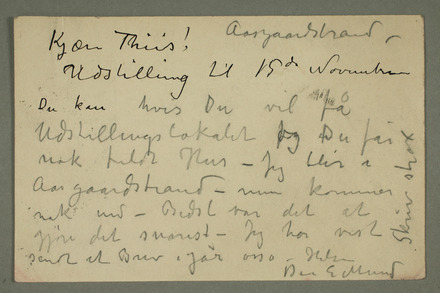 Aasgaardstrand –
Kjære Thiis!
Udstilling til 15de November
Du kan hvis Du vil få
Udstillingslokalet Jeg Du får
nok fuldt Hus – Jeg blir i
Aasgaardstrand – men kommer
nok ind – Bedst var det at
gjøre det snarest – Jeg har vist
sendt et Brev igår osso – Hilsen
Din E Munch
Skriv strax